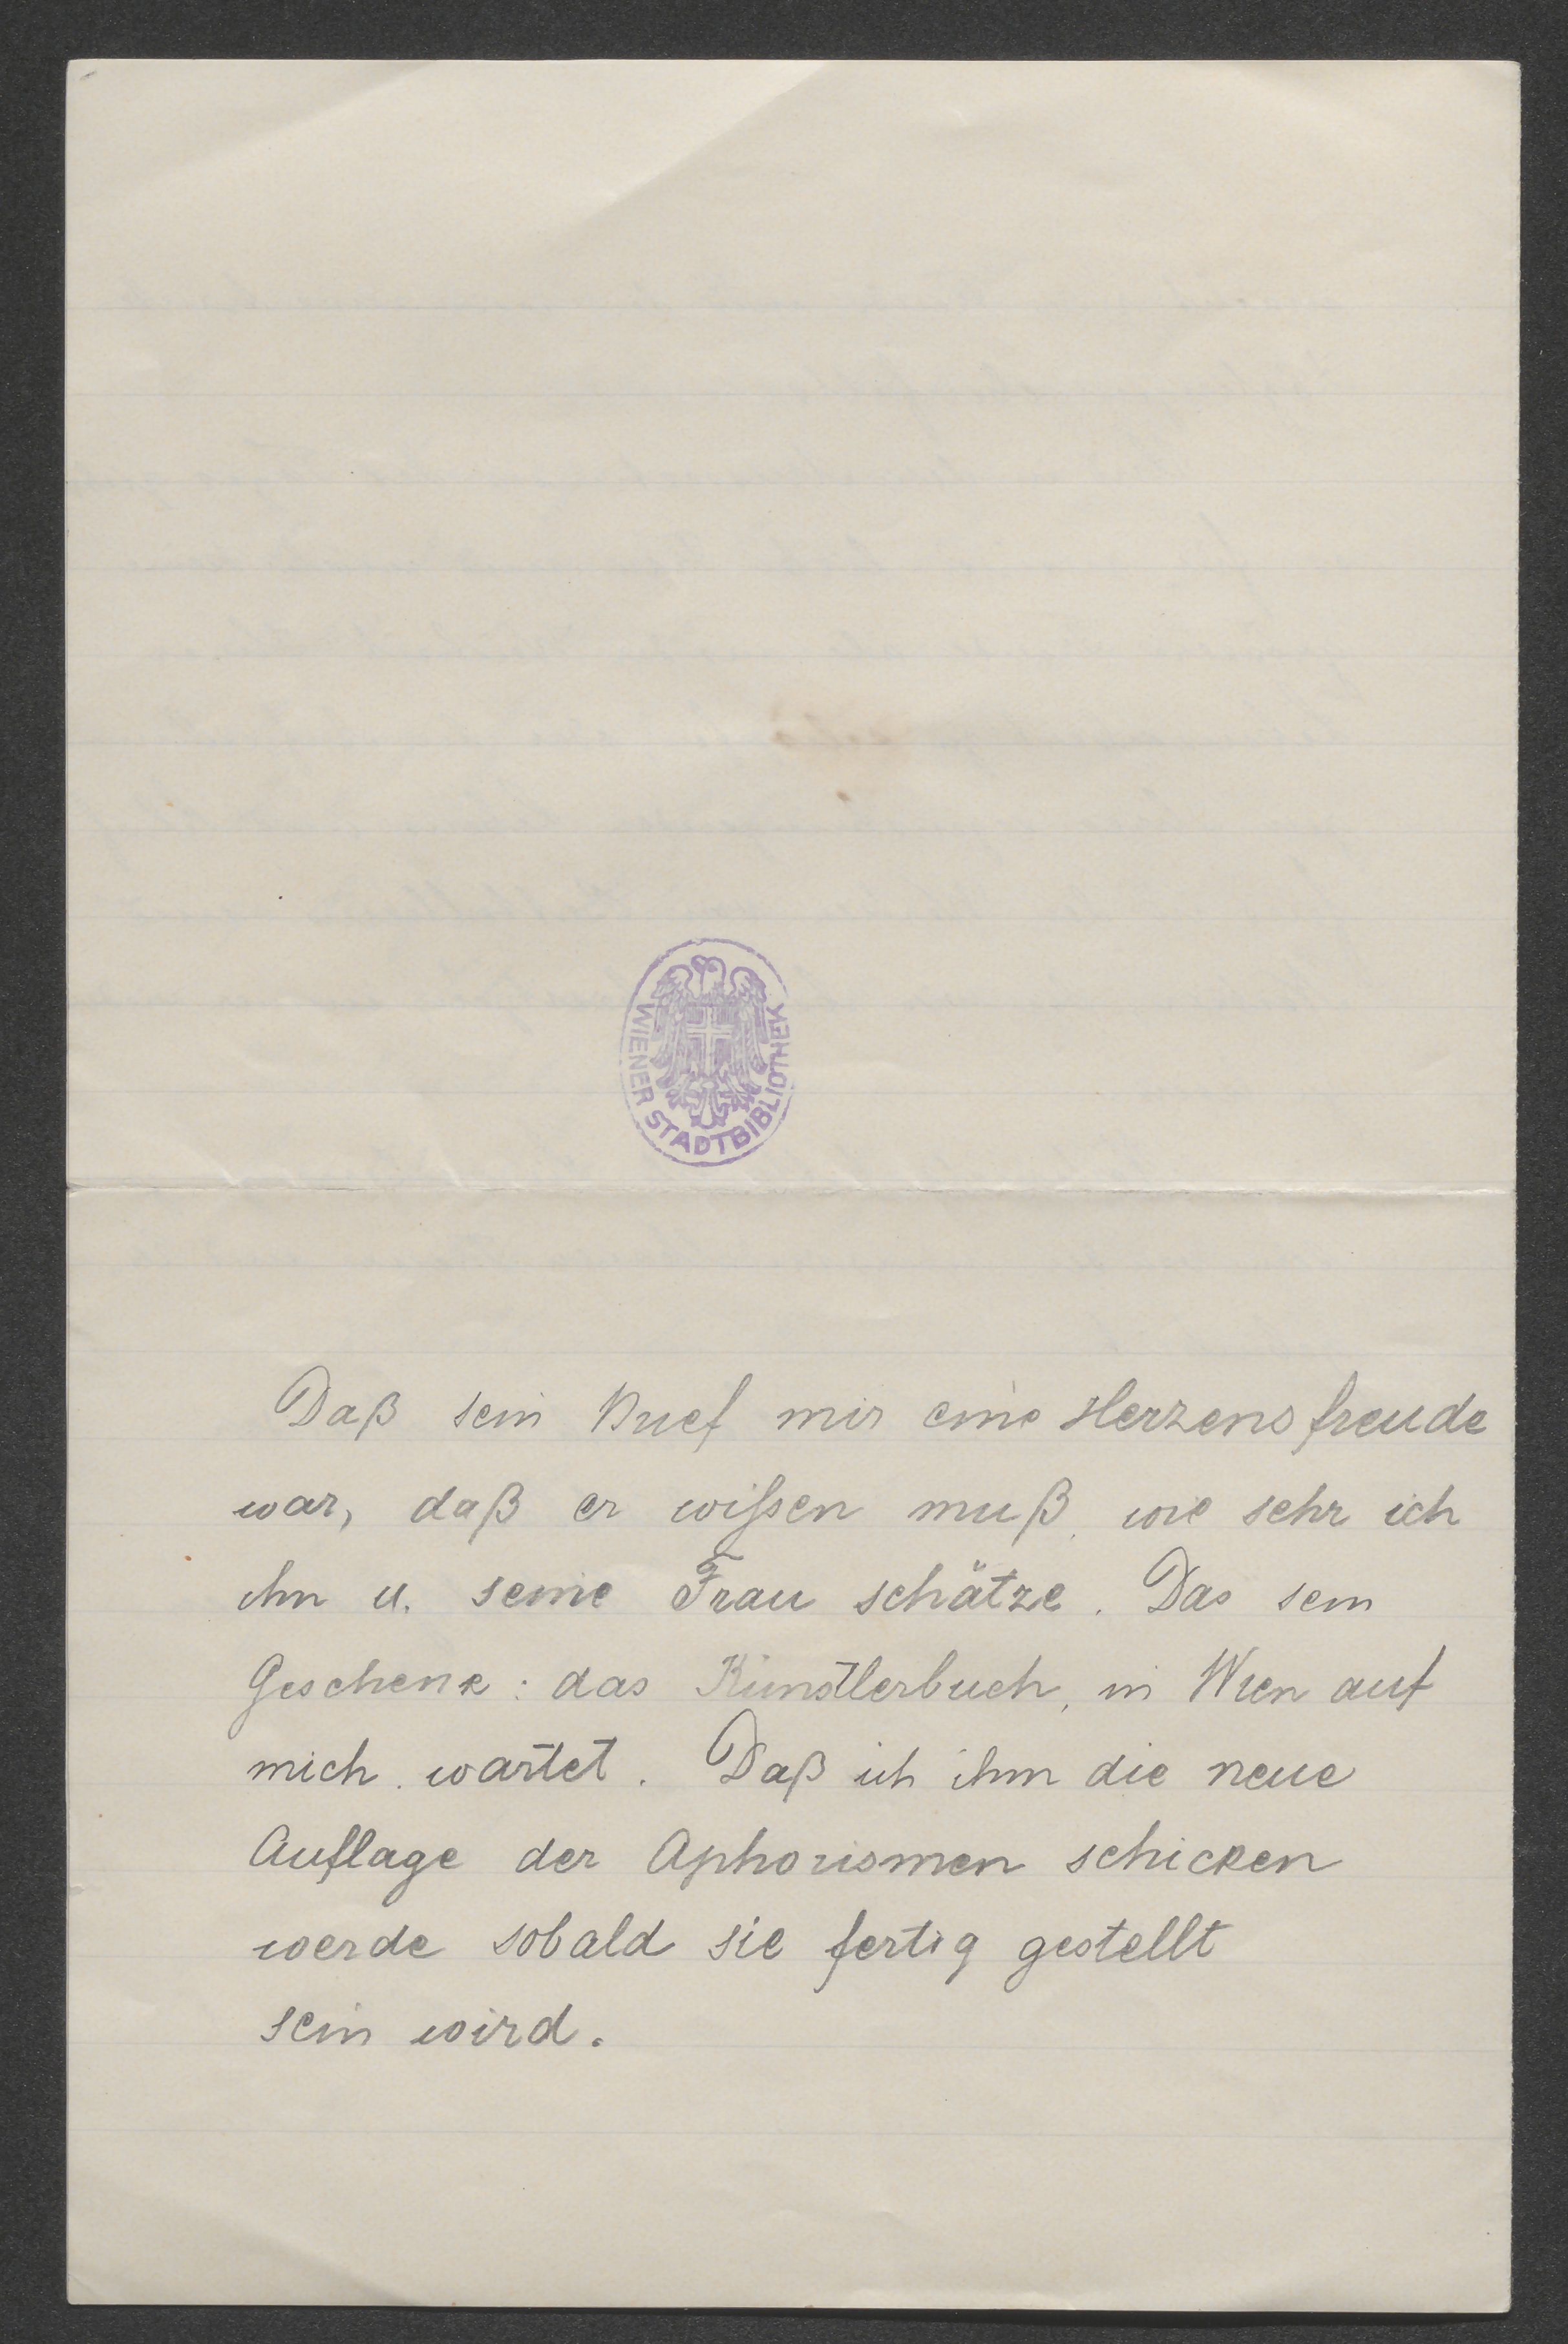 WIENER STADTBIBLIOTHEK
Daß sein Brief mir eine Herzensfreude
war, daß er wißsen muß, wie sehr ich
ihn u. seine Frau schätze. Das sein
Geschenk: das Künstlerbuch, in Wien auf
mich wartet. Daß ich ihm die neue
Auflage der Aphorismen schicken
werde sobald sie fertig gestellt
sein wird.